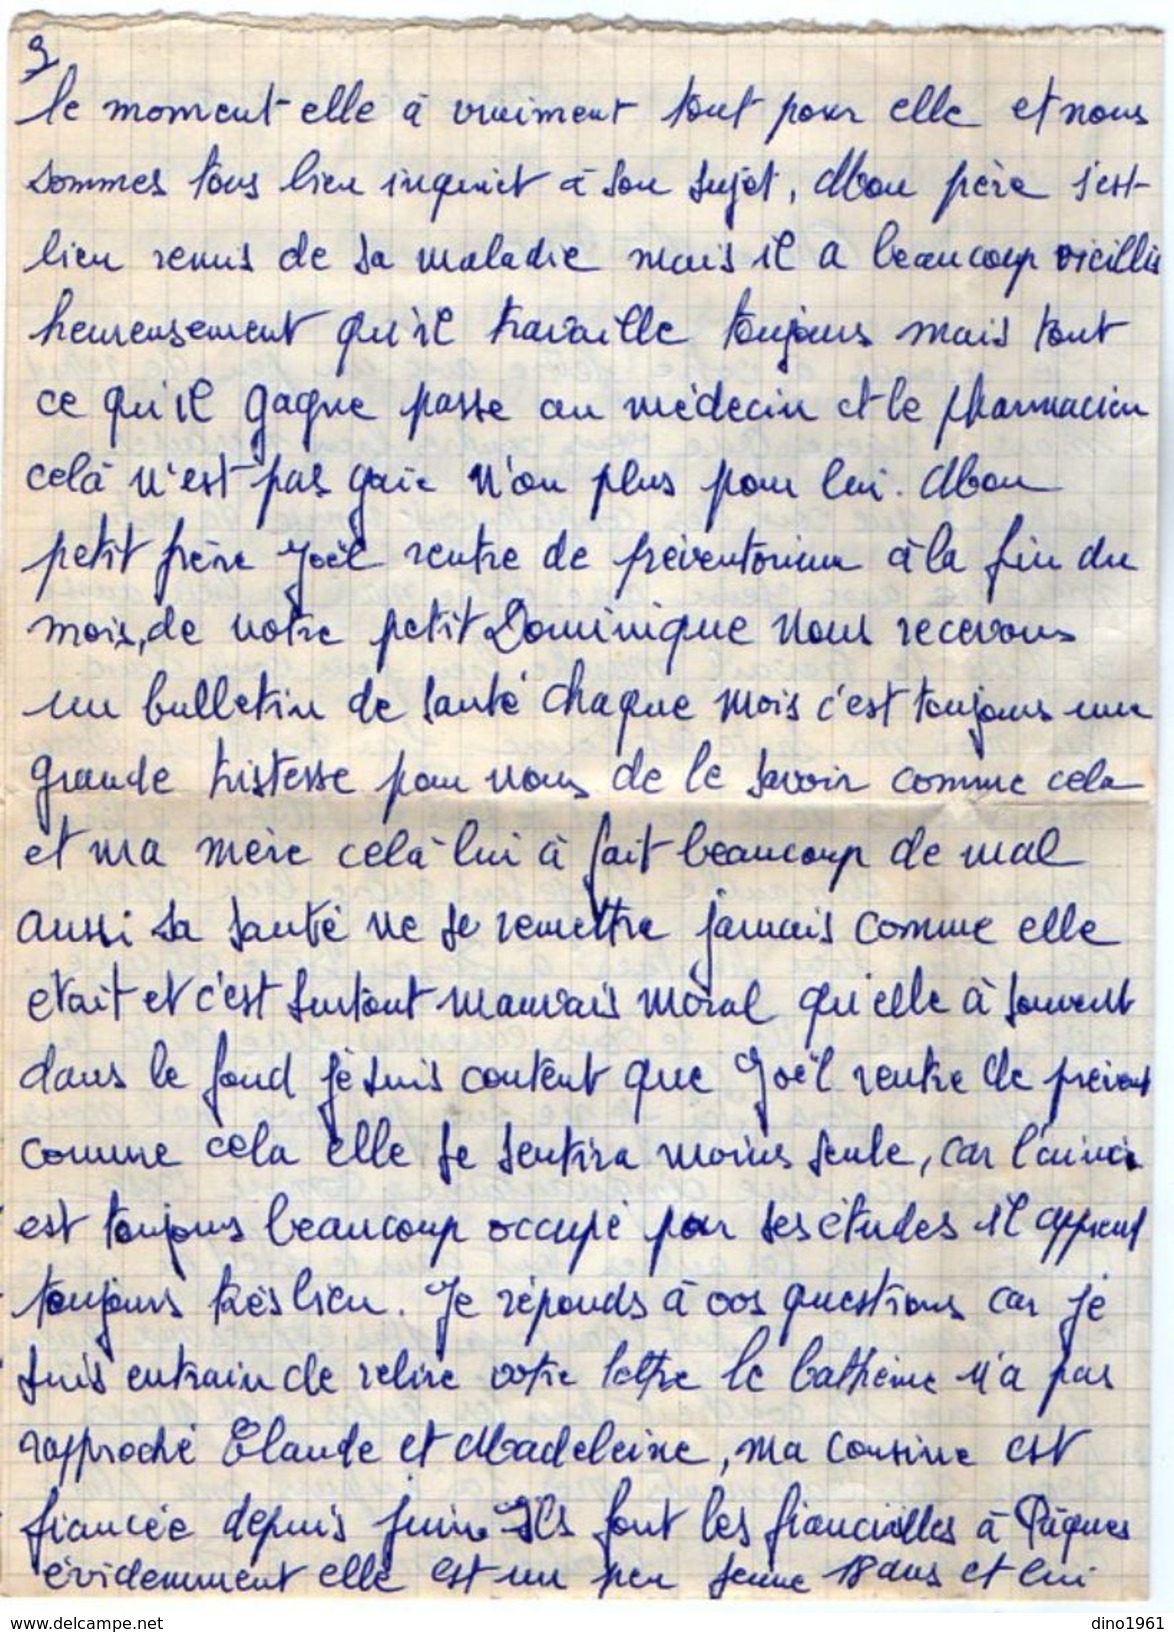 3
le moment elle à vraiment tout pour elle et nous
sommes tous bien inquiet à son sujet, Mon père s'est
bien remis de sa maladie mais il a beaucoup vieillis
heureusement qu'il travaille toujours mais tout
ce qu'il gagne passe au médecin et le pharmacien
celà n'est pas gaie n'on plus pour lui. Mon
petit frère Joël rentre de préventorium à la fin du
mois, de notre petit Dominique nous recevons
un bulletin de santé chaque mois c'est toujours une
grande tristesse pour nous de le savoir comme cela
et ma mère celà lui à fait beaucoup de mal
aussi sa santé ne se remettre jamais comme elle
etait et c'est surtout mauvais moral qu'elle à souvent
dans le fond je suis content que Joël rentre de prévent
comme cela elle se sentira moins seule, car l'ainé
est toujours beaucoup occupé par ses études il apprend
toujours très bien. Je réponds à vos questions car je
suis entrain de relire votre lettre le bathème n'a pas
rapproché Claude et Madeleine, ma cousine est
fiancée depuis juin Ils font les fiancialles à Pâques
évidemment elle est un peu jeune 18 ans et lui
www.delcampe.net
dino1961